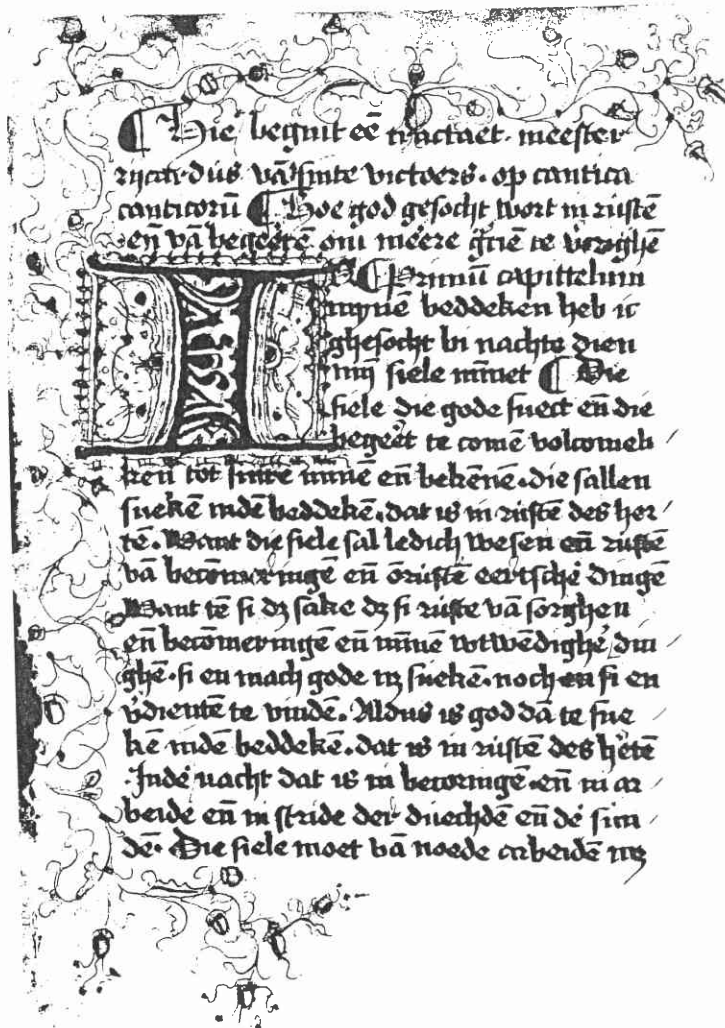 ¶ Hie begint eē tractaet · meester
rijcardus vā sinte victoers · op cantica
canticorū ¶ Hoe god gesocht wort in rustē
eñ vā begeertē om meere gr̄ciē te v̓crighē
IN ¶ Primū capittelum
mynē beddeken heb ic
ghesocht bi nachte dien
mijn siele mīnet ¶ Die
siele die gode suect eñ die
begeert te comē volcomeli /
ken tot sinre minnē eñ bekēnē · die sallen
suekē inden beddekē · dat is in rustē des her /
tē · Want die siele sal ledich wesen eñ rustē
vā becōmeringē eñ ōrustē eertschē dingē
Want tē si dz sake dz si ruste vā sorghen
eñ becōmeringē eñ mīnē wtwēdighē din /
ghē · si en mach gode nz suekē · noch en si en
v̓dientē te vindē · Aldus is god dā te sue /
kē inden beddekē · dat is in rustē des h̓tē
Inde nacht dat is in becoringē · eñ in ar /
beide eñ in stride der duechdē eñ dē sun /
dē · Die siele moet vā noede arbeidē nz